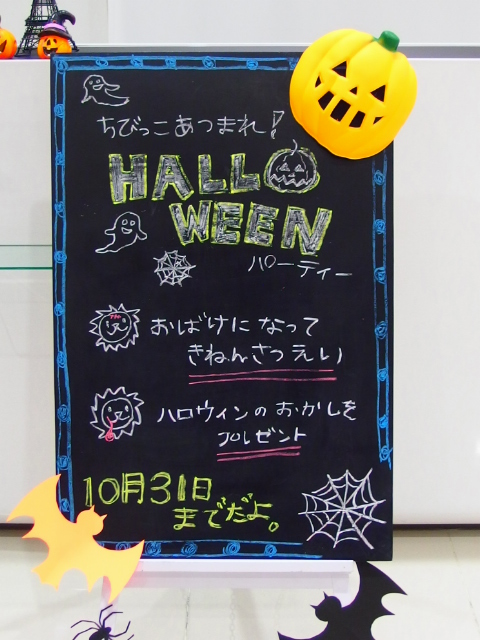 ちびっこあつまれ!
HALLO
WEEN
パーティー
おばけになって
きねんさつえい
ハロウィンのおかしを
プレゼント
10月31日
までだよ。